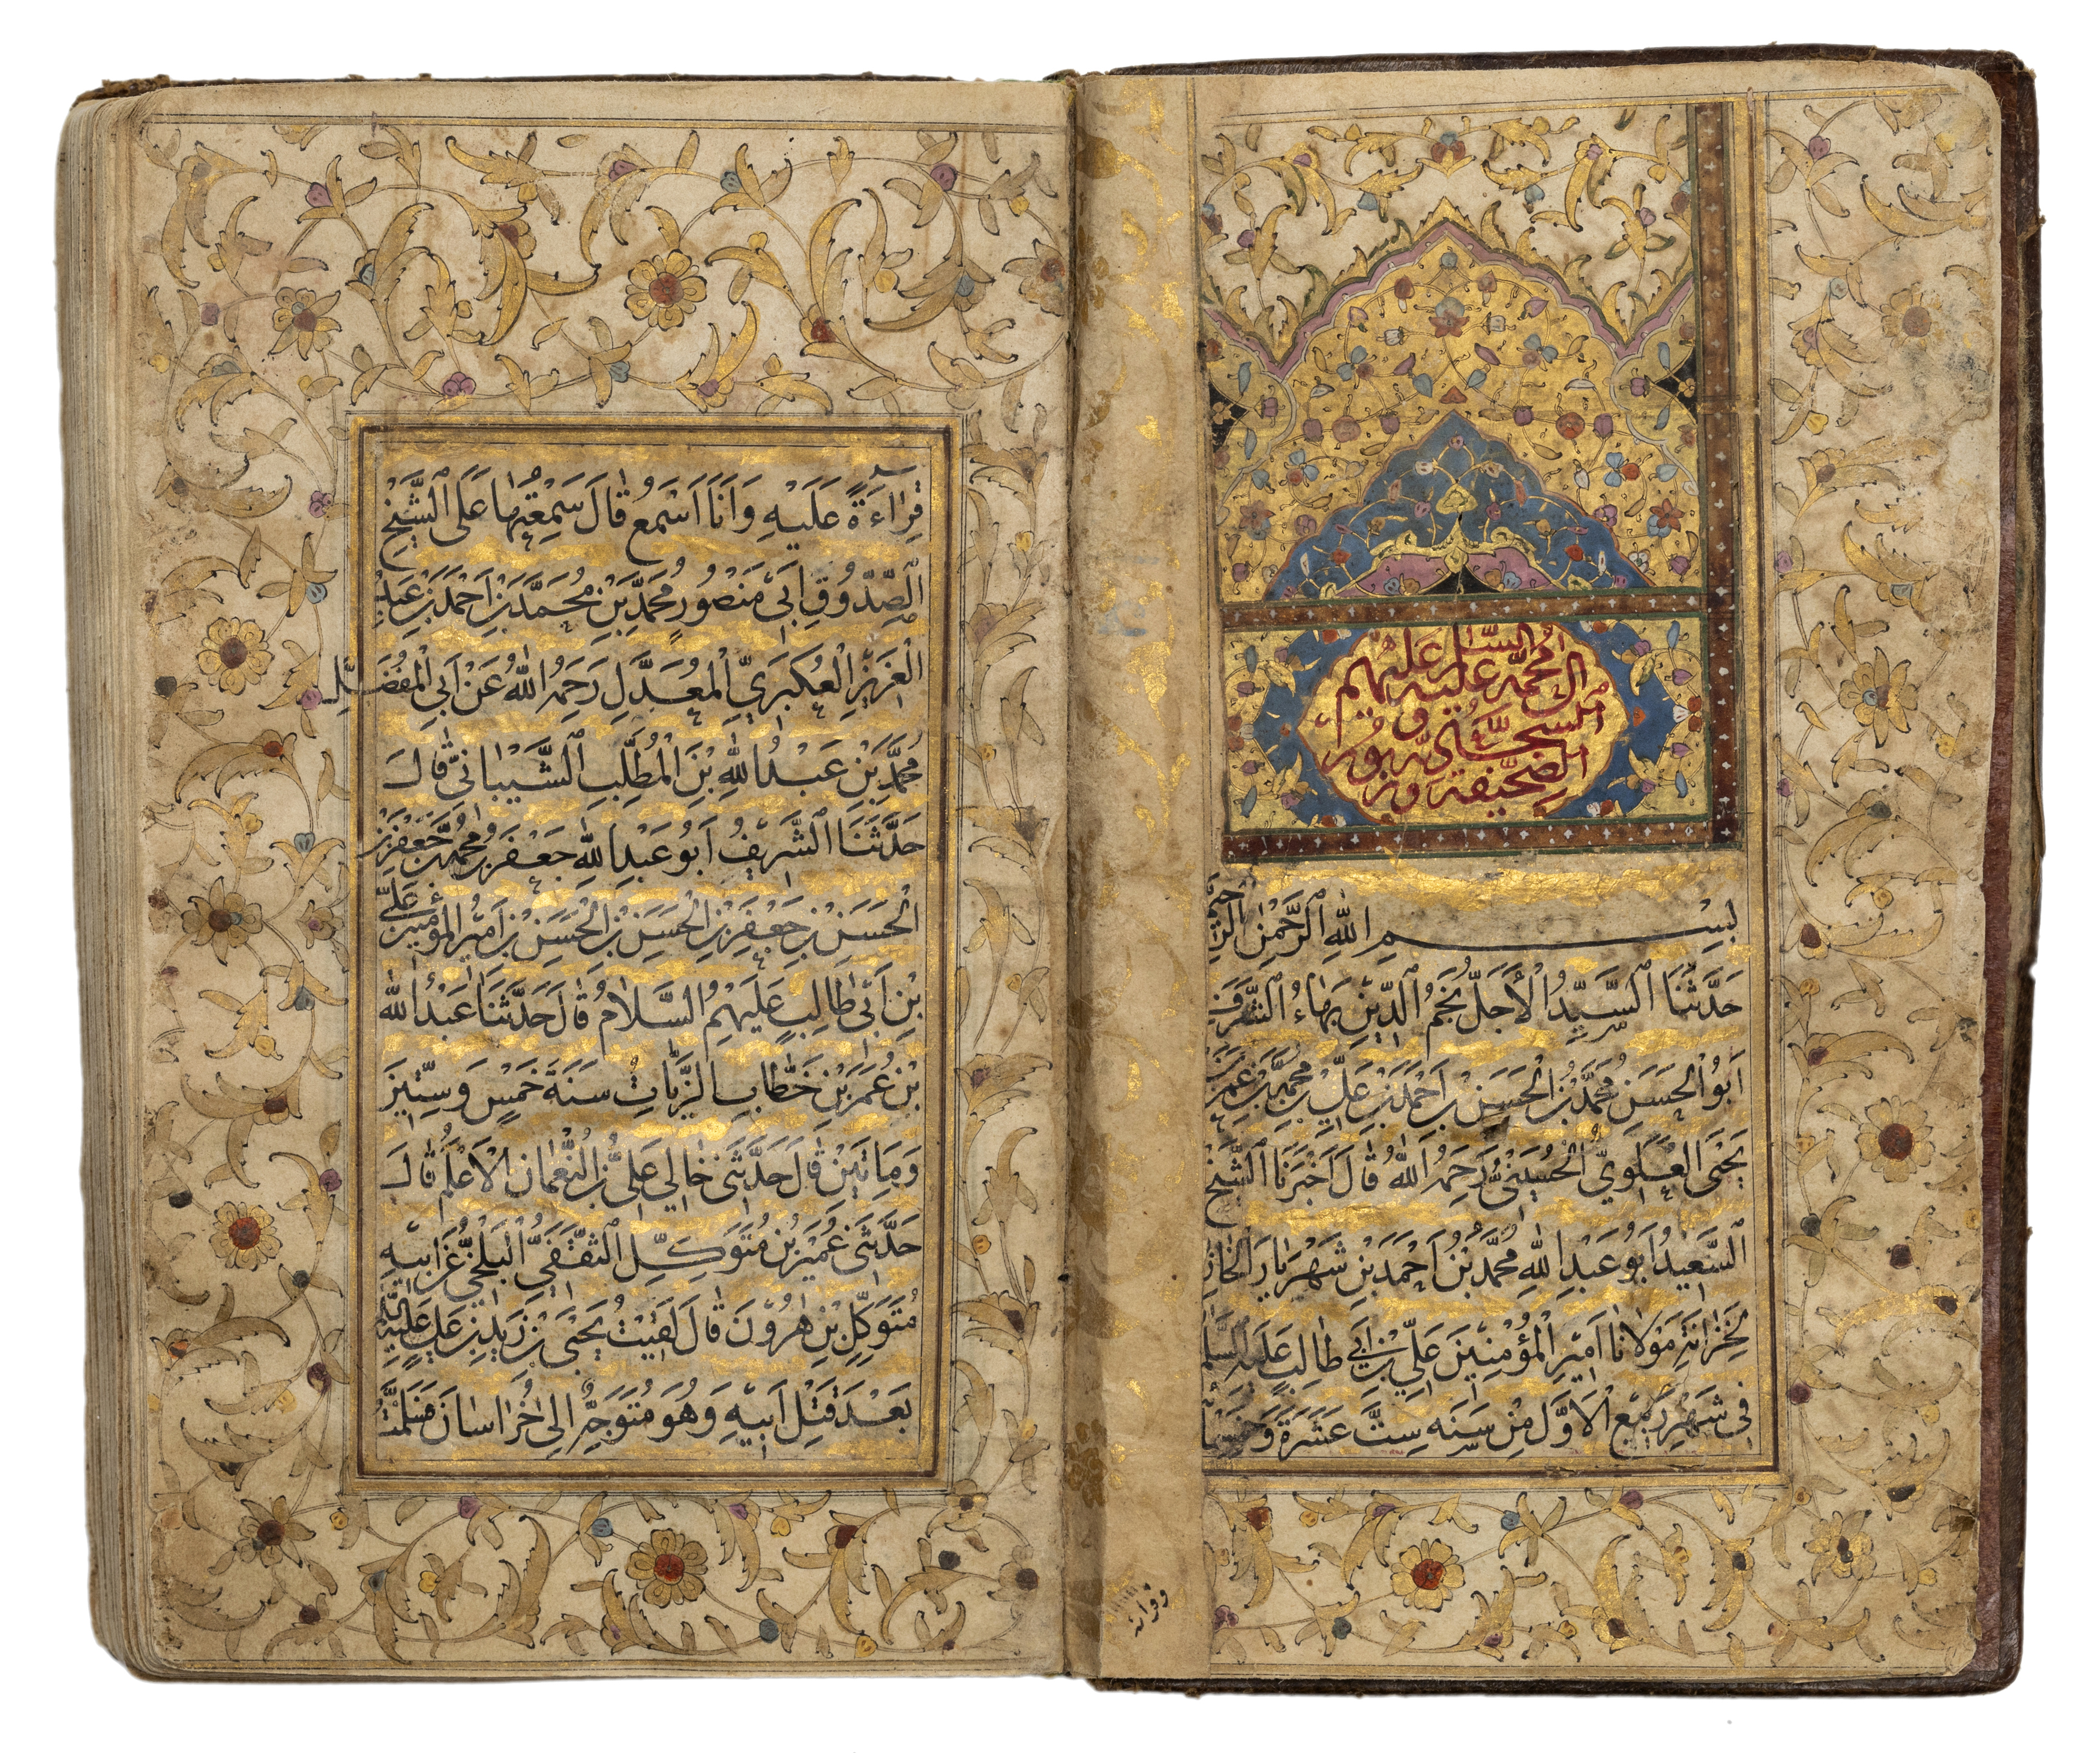 الصحيفة وزبور
السجادية
ال محمد عليه وعليهم
السلام
بِسْمِ اللهِ الرَّحْمٰنِ الرَّحِيمِ
حَدَّثَنَا السَّيِّدُ الْأَجَلُّ نَجْمُ الدِّينِ بَهَاءُ الشَّرَفِ
اَبُو الْحَسَنِ مُحَمَّدُ بْنُ الْحَسَنِ بْنِ اَحْمَدَ بْنِ عَلِيِّ بْنِ مُحَمَّدِ بْنِ عُمَرَ بْنِ
يَحْيَى الْعَلَوِيُّ الْحُسَيْنِيُّ رَحِمَهُ اللهُ قَالَ اَخْبَرَنَا الشَّيْخُ
السَّعِيدُ اَبُو عَبْدِ اللهِ مُحَمَّدُ بْنُ اَحْمَدَ بْنِ شَهْرِيَارَ الْخَازِنُ
لِخَزَانَةِ مَوْلَانَا اَمِيرِ الْمُؤْمِنِينَ عَلِيِّ بْنِ اَبِي طَالِبٍ عَلَيْهِ السَّلَامُ
فِي شَهْرِ رَبِيعِ الْاَوَّلِ مِنْ سَنَةِ سِتَّ عَشْرَةَ وَخَمْسَمِائَةٍ
وقرائة
قِرَاءَةً عَلَيْهِ وَاَنَا اَسْمَعُ قَالَ سَمِعْتُهَا عَلَى الشَّيْخِ
الصَّدُوقِ اَبِي مَنْصُورٍ مُحَمَّدِ بْنِ مُحَمَّدِ بْنِ اَحْمَدَ بْنِ عَبْدِ
الْعَزِيزِ الْعُكْبَرِيِّ الْمُعَدَّلِ رَحِمَهُ اللهُ عَنْ اَبِي الْمُفَضَّلِ
مُحَمَّدِ بْنِ عَبْدِ اللهِ بْنِ الْمُطَّلِبِ الشَّيْبَانِيِّ قَالَ
حَدَّثَنَا الشَّرِيفُ اَبُو عَبْدِ اللهِ جَعْفَرُ بْنُ مُحَمَّدِ بْنِ جَعْفَرِ بْنِ
الْحَسَنِ بْنِ جَعْفَرِ بْنِ الْحَسَنِ بْنِ الْحَسَنِ بْنِ اَمِيرِ الْمُؤْمِنِينَ عَلِيِّ
بْنِ اَبِي طَالِبٍ عَلَيْهِمُ السَّلَامُ قَالَ حَدَّثَنَا عَبْدُ اللهِ
بْنُ عُمَرَ بْنِ خَطَّابِ الزَّيَّاتُ سَنَةَ خَمْسٍ وَسِتِّينَ
وَمِائَتَيْنِ قَالَ حَدَّثَنِي خَالِي عَلِيُّ بْنُ النُّعْمَانِ الْاَعْلَمُ قَالَ
حَدَّثَنِي عُمَيْرُ بْنُ مُتَوَكِّلٍ الثَّقَفِيُّ الْبَلْخِيُّ عَنْ اَبِيهِ
مُتَوَكِّلِ بْنِ هَارُونَ قَالَ لَقِيتُ يَحْيَى بْنَ زَيْدِ بْنِ عَلِيٍّ عَلَيْهِ السَّلَامُ
بَعْدَ قَتْلِ اَبِيهِ وَهُوَ مُتَوَجِّهٌ اِلَى خُرَاسَانَ فَسَلَّمْتُ